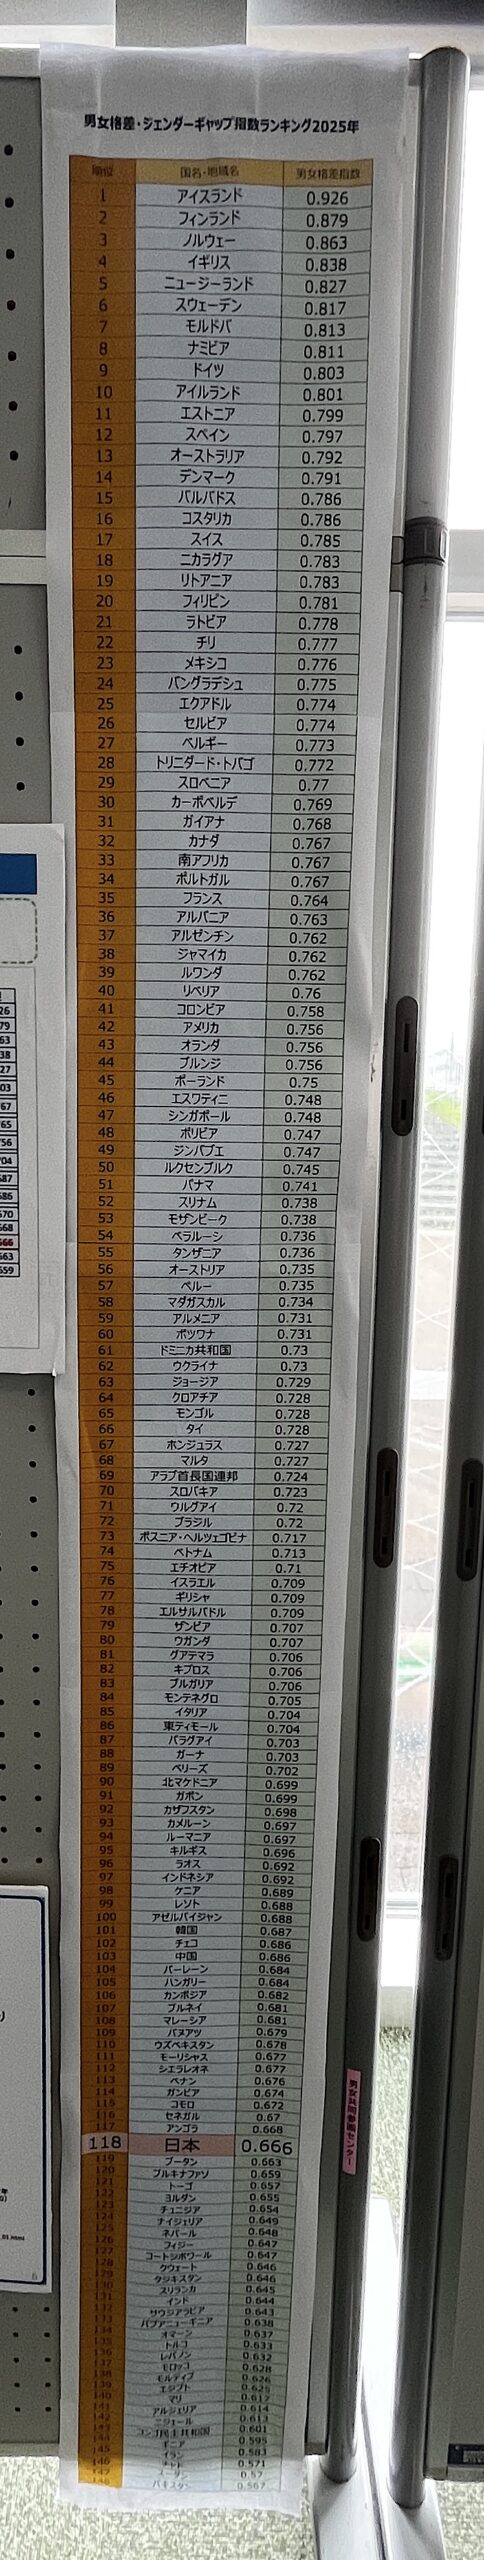 男女格差・ジェンダーギャップ指数ランキング2025年
順位 国名・地域名 男女格差指数
1 アイスランド 0.926
2 フィンランド 0.879
3 ノルウェー 0.863
4 イギリス 0.838
5 ニュージーランド 0.827
6 スウェーデン 0.817
7 モルドバ 0.813
8 ナミビア 0.811
9 ドイツ 0.803
10 アイルランド 0.801
11 エストニア 0.799
12 スペイン 0.797
13 オーストラリア 0.792
14 デンマーク 0.791
15 バルバドス 0.786
16 コスタリカ 0.786
17 スイス 0.785
18 ニカラグア 0.783
19 リトアニア 0.783
20 フィリピン 0.781
21 ラトビア 0.778
22 チリ 0.777
23 メキシコ 0.776
24 バングラデシュ 0.775
25 エクアドル 0.774
26 セルビア 0.774
27 ベルギー 0.773
28 トリニダード・トバゴ 0.772
29 スロベニア 0.77
30 カーボベルデ 0.769
31 ガイアナ 0.768
32 カナダ 0.767
33 南アフリカ 0.767
34 ポルトガル 0.767
35 フランス 0.764
36 アルバニア 0.763
37 アルゼンチン 0.762
38 ジャマイカ 0.762
39 ルワンダ 0.762
40 リベリア 0.76
41 コロンビア 0.758
42 アメリカ 0.756
43 オランダ 0.756
44 ブルンジ 0.756
45 ポーランド 0.75
46 エスワティニ 0.748
47 シンガポール 0.748
48 ボリビア 0.747
49 ジンバブエ 0.747
50 ルクセンブルク 0.745
51 パナマ 0.741
52 スリナム 0.738
53 モザンビーク 0.738
54 ベラルーシ 0.736
55 タンザニア 0.736
56 オーストリア 0.735
57 ペルー 0.735
58 マダガスカル 0.734
59 アルメニア 0.731
60 ボツワナ 0.731
61 ドミニカ共和国 0.73
62 ウクライナ 0.73
63 ジョージア 0.729
64 クロアチア 0.728
65 モンゴル 0.728
66 タイ 0.728
67 ホンジュラス 0.727
68 マルタ 0.727
69 アラブ首長国連邦 0.724
70 スロバキア 0.723
71 ウルグアイ 0.72
72 ブラジル 0.72
73 ボスニア・ヘルツェゴビナ 0.717
74 ベトナム 0.713
75 エチオピア 0.71
76 イスラエル 0.709
77 ギリシャ 0.709
78 エルサルバドル 0.709
79 ザンビア 0.707
80 ウガンダ 0.707
81 グアテマラ 0.706
82 キプロス 0.706
83 ブルガリア 0.706
84 モンテネグロ 0.705
85 イタリア 0.704
86 東ティモール 0.704
87 パラグアイ 0.703
88 ガーナ 0.703
89 ベリーズ 0.702
90 北マケドニア 0.699
91 ガボン 0.699
92 カザフスタン 0.698
93 カメルーン 0.697
94 ルーマニア 0.697
95 キルギス 0.696
96 ラオス 0.692
97 インドネシア 0.692
98 ケニア 0.689
99 レソト 0.688
100 アゼルバイジャン 0.688
101 韓国 0.687
102 チェコ 0.686
103 中国 0.686
104 バーレーン 0.684
105 ハンガリー 0.684
106 カンボジア 0.682
107 ブルネイ 0.681
108 マレーシア 0.681
109 バヌアツ 0.679
110 ウズベキスタン 0.678
111 モーリシャス 0.677
112 シエラレオネ 0.677
113 ベナン 0.676
114 ガンビア 0.674
115 コモロ 0.672
116 セネガル 0.67
117 アンゴラ 0.668
118 日本 0.666
119 ブータン 0.663
120 ブルキナファソ 0.659
121 トーゴ 0.657
122 ヨルダン 0.655
123 チュニジア 0.654
124 ナイジェリア 0.649
125 ネパール 0.648
126 フィジー 0.647
127 コートジボワール 0.647
128 クウェート 0.646
129 タジキスタン 0.646
130 スリランカ 0.645
131 インド 0.644
132 サウジアラビア 0.643
133 パプアニューギニア 0.638
134 オマーン 0.637
135 トルコ 0.633
136 レバノン 0.632
137 モロッコ 0.628
138 モルディブ 0.626
139 エジプト 0.625
140 マリ 0.617
141 アルジェリア 0.614
142 ニジェール 0.613
143 コンゴ民主共和国 0.601
144 ギニア 0.595
145 イラン 0.583
146 チャド 0.571
147 スーダン 0.57
148 パキスタン 0.567
男女共同参画センター